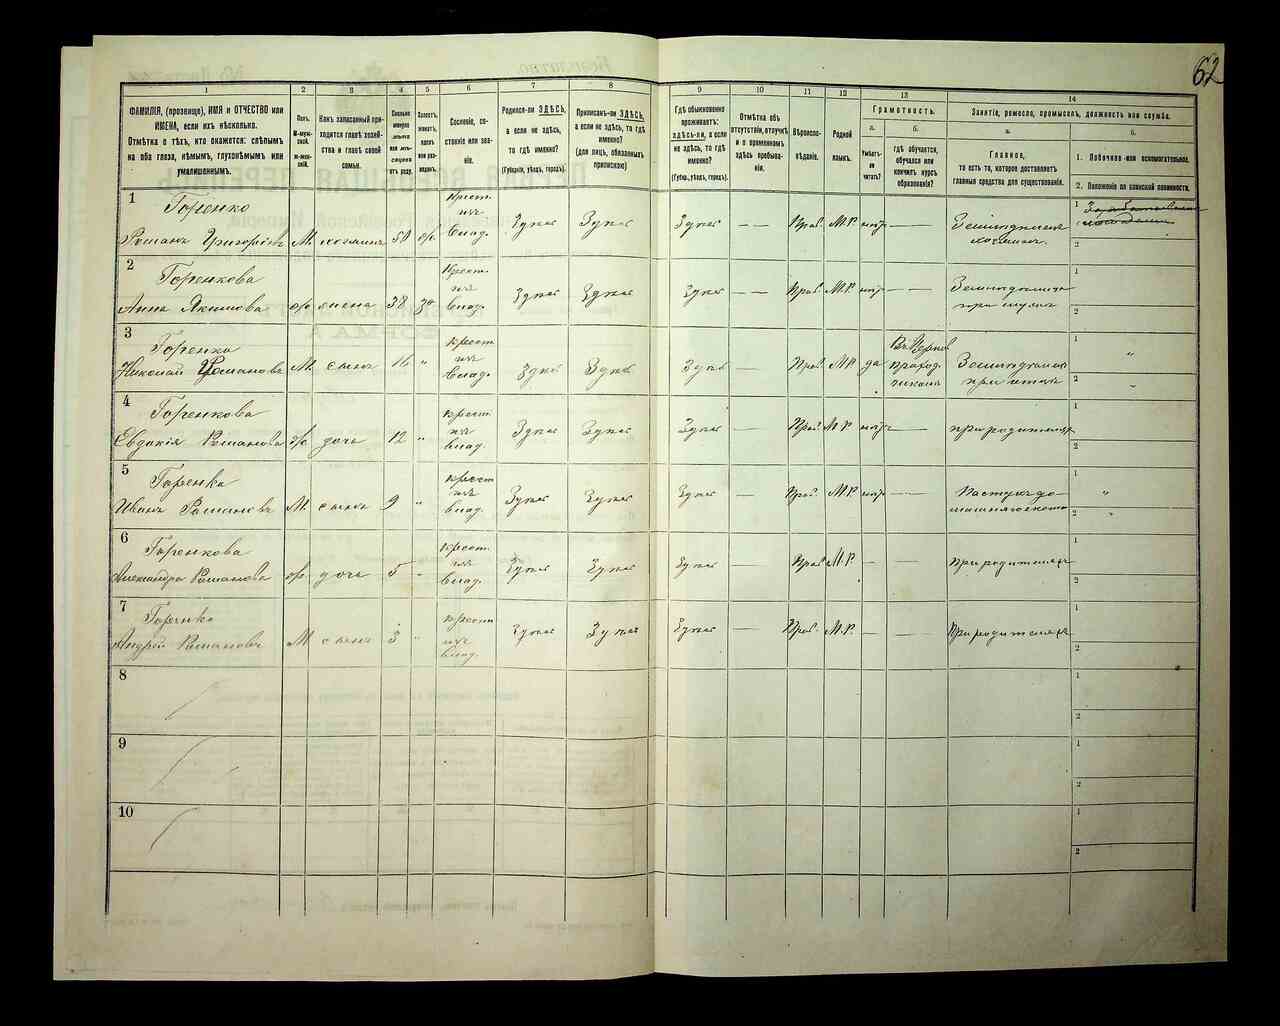 62
1 2 3 4 5 6 7 8 9 10 11 12 13 14
ФАМИЛІЯ, (прозвище), ИМЯ и ОТЧЕСТВО или
ИМЕНА, если ихъ нѣсколько.
Отмѣтка о тѣхъ, кто окажется: слѣпымъ
на оба глаза, нѣмымъ, глухонѣмымъ или
умалишеннымъ.
Полъ.
М-муж-
ской.
Ж-жен-
скій.
Какъ записанный при-
ходится главѣ хозяй-
ства и главѣ своей
семьи.
Сколько
минуло
лѣтъ
или мѣ-
сяцевъ
отъ роду.
Сословіе, со-
стояніе или зва-
ніе.
Родился-ли ЗДѢСЬ,
а если не здѣсь,
то гдѣ именно?
(Губернія, уѣздъ, городъ).
Приписанъ-ли ЗДѢСЬ,
а если не здѣсь, то гдѣ
именно?
(для лицъ, обязанныхъ
припискою)
Гдѣ обыкновенно
проживаетъ:
здѣсь-ли, а если
не здѣсь, то гдѣ
именно?
(Губерн., уѣздъ, городъ).
Отмѣтка объ
отсутствіи, отлучкѣ
и о временномъ
здѣсь пребыва-
ніи.
Вѣроиспо-
вѣданіе.
Родной
языкъ.
Грамотность.
а.
Умѣетъ-
ли
читать?
б.
гдѣ обучается,
обучался или
кончилъ курсъ
образованія?
Занятіе, ремесло, промыселъ, должность или служба.
а.
Главное,
то есть то, которое доставляетъ
главныя средства для существованія.
б.
1. Побочное или вспомогательное.
2. Положеніе по воинской повинности.
1
Горенко
Романъ Григорьевъ М хозяинъ 50 Крест. изъ Влад. Здѣсь Здѣсь Здѣсь — — Прав. М.Р. нѣтъ —
1
2
2
Горенкова
Анна Якимова жена 38 Крест. изъ Влад. Здѣсь Здѣсь Здѣсь — — Прав. М.Р. нѣтъ —
при мужѣ
1
2
3
Горенко
Николай Романовъ М сынъ 16 „ Крест. изъ Влад. Здѣсь Здѣсь Здѣсь — Прав. М.Р. да
при отцѣ
1 „
2 „
4
Горенкова
Евдокія Романова дочь 12 „ Крест. изъ Влад. Здѣсь Здѣсь Здѣсь — Прав. М.Р. нѣтъ — при родителяхъ
1
2
5
Горенко
Иванъ Романовъ М сынъ 9 „ Крест. изъ Влад. Здѣсь Здѣсь Здѣсь — Прав. М.Р. нѣтъ — Пастухъ до-
машняго скота
1 „
2 „
6
Горенкова
Александра Романова дочь 5 „ Крест. изъ Влад. Здѣсь Здѣсь Здѣсь — Прав. М.Р. — — При родителяхъ
1
2
7
Горенко
Андрей Романовъ М сынъ 3 „ Крест. изъ Влад. Здѣсь Здѣсь Здѣсь — Прав. М.Р. — — При родителяхъ
1
2
8
1
2
9
1
2
10
1
2